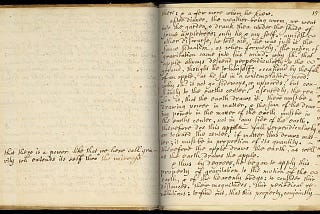 that there is a power like that we here call gra-
vity wh extends its self thro' the universe
15
after dinner, the weather being warm, we went
into the garden, & drank thea under the shade of
some appletrees, only he, & my self. amidst
other discourse, he told me, he was just in the
same situation, as when formerly, the notion of
gravitation came into his mind. why sh'd that
apple always descend perpendicularly to the
ground, thought he to himself: occasion'd by the fall
of an apple, as he sat in a contemplative mood.
why sh'd it not go sideways, or upwards? but con-
stantly to the earths center? assuredly, the rea-
son is, that the earth draws it. there must be a
drawing power in matter. & the sum of the draw-
ing power in the matter of the earth must be
in the earths center, not in any side of the earth.
therefore dos this apple fall perpendicularly
or toward the center. if matter thus draws mat-
ter; it must be in proportion of its quantity.
therefore the apple draws the earth, as well
as the earth draws the apple.
& thus by degrees, he began to apply this
property of gravitation to the motion of the
earth, & of the heavenly bodys: to consider thir
distances, their magnitudes, thir periodical re-
volutions: to find out, that this property, conjointly